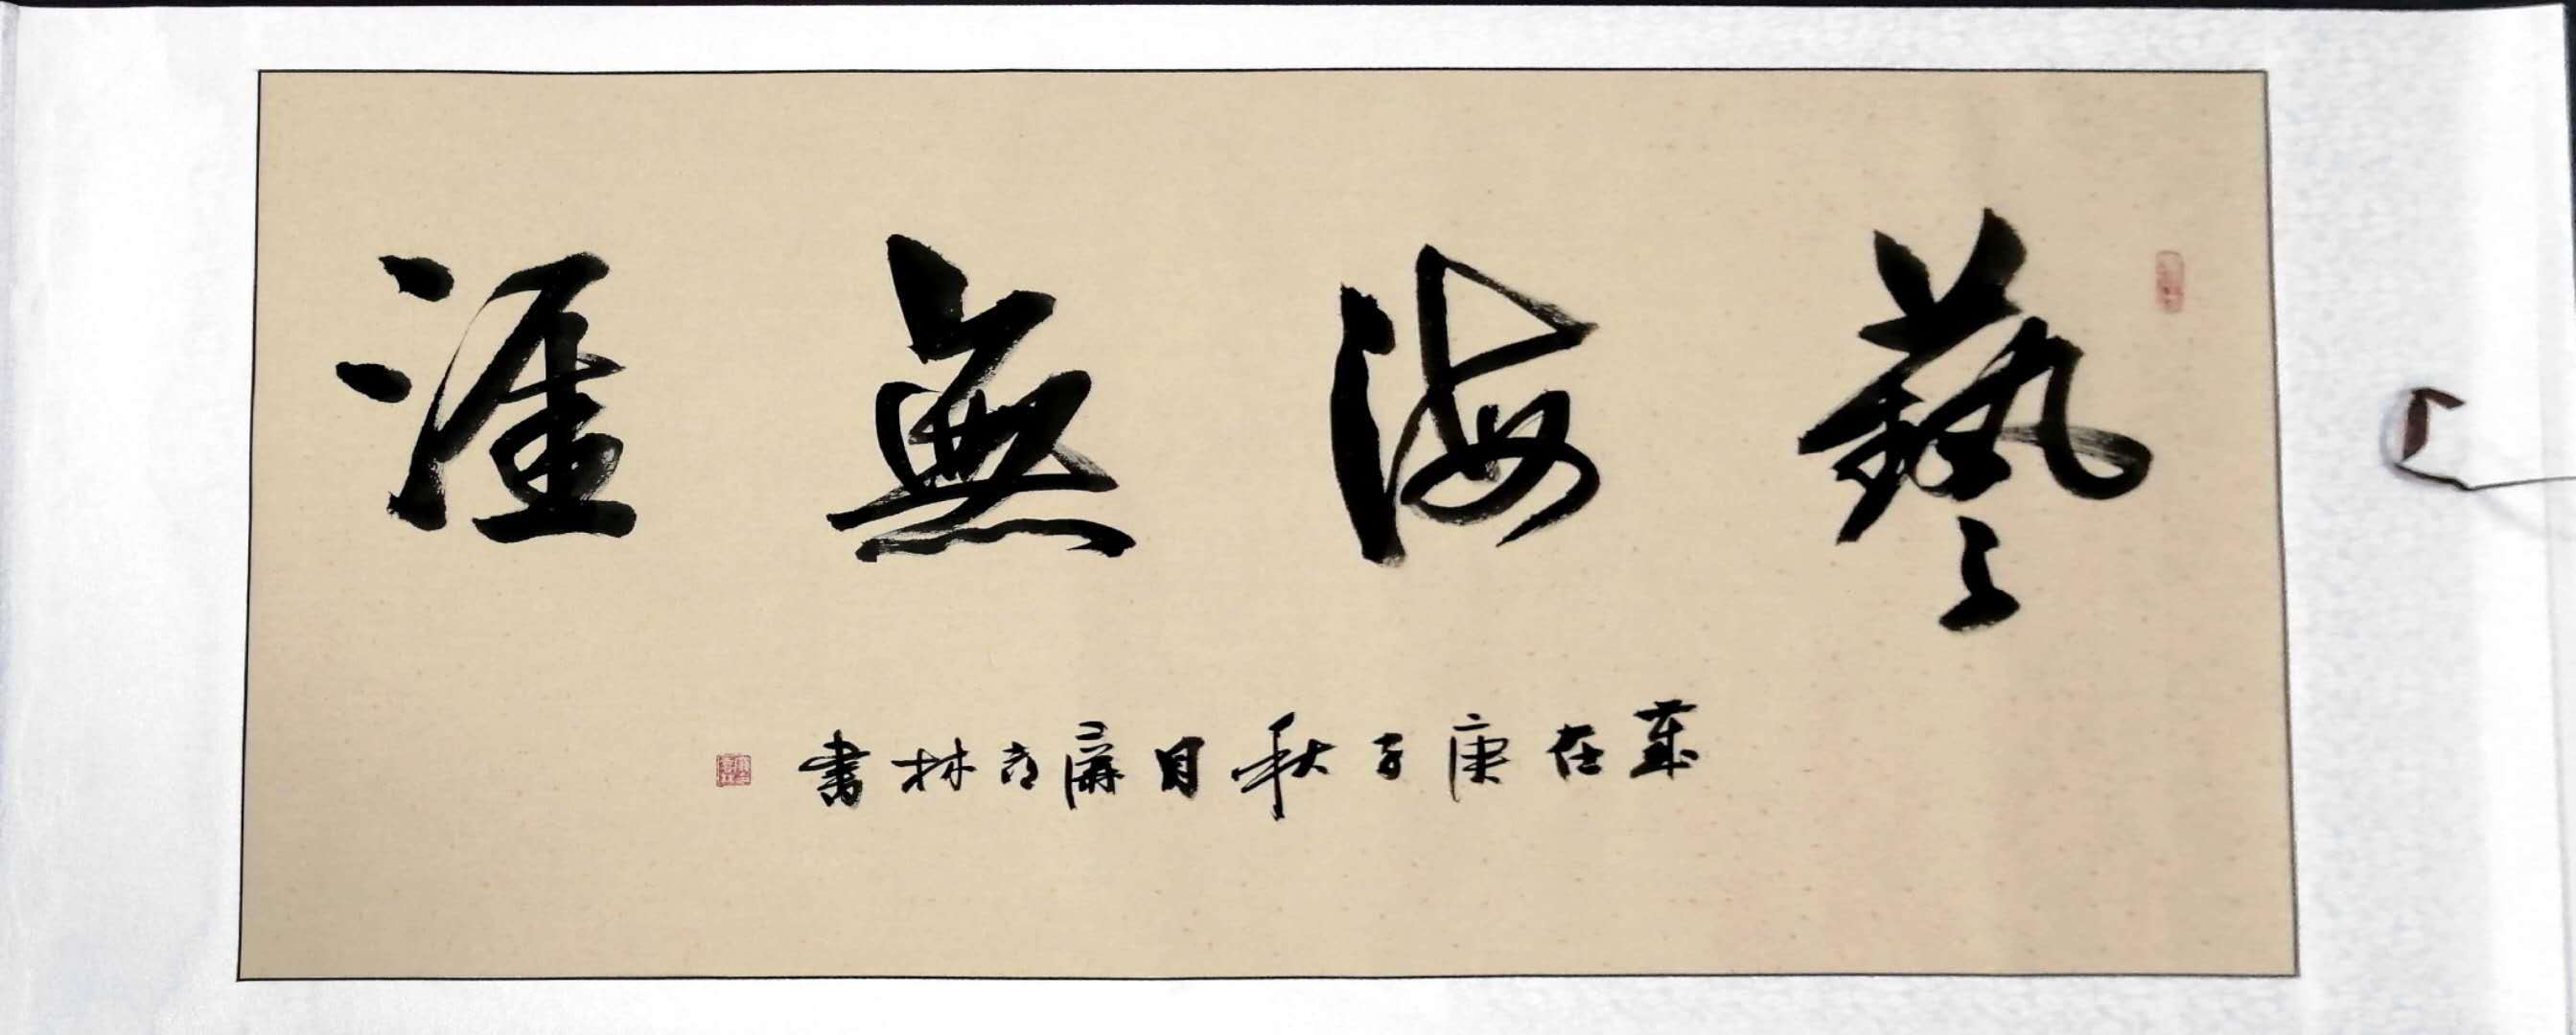 藝海無涯
歲在庚子秋月 林書